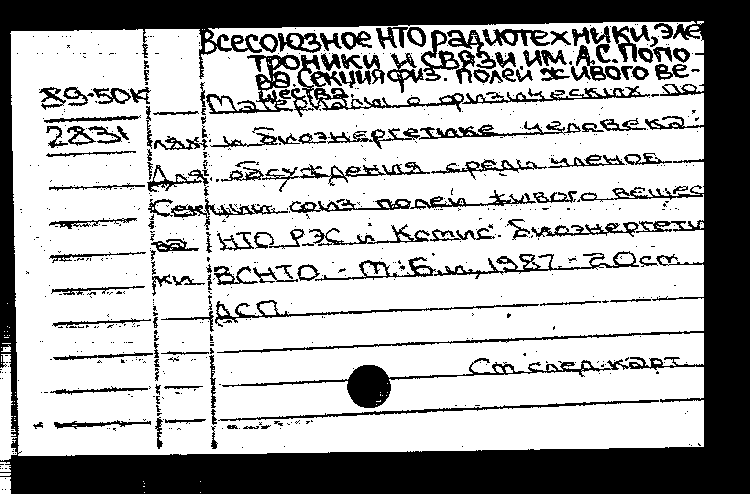 Всесоюзное НТО радиотехники, эле
троники и связи им. А.С. Попо-
ва. Секция физ. полей живого ве-
щества.
89-50к
Материалы о физических по-
2831
лях и биоэнергетике человека:
Для обсуждения среди членов
Секции физ полей живого вещес
ва НТО РЭС и Комис. биоэнергети
ки ВСНТО. - М.: Б.и., 1987. - 20см.
ДСП.
См след. карт